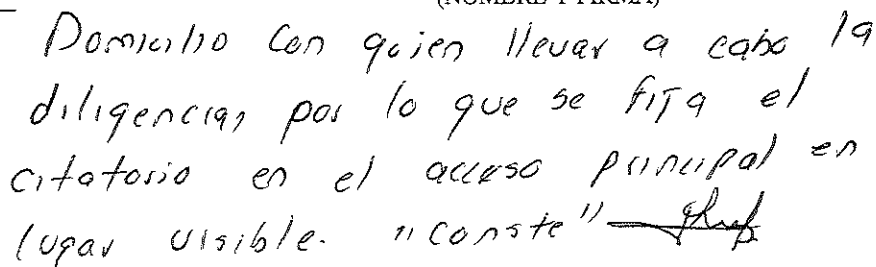 (NOMBRE Y FIRMA)
Domicilio con quien llevar a cabo la
diligencia, por lo que se fija el
citatorio en el acceso principal en
lugar visible. "conste"